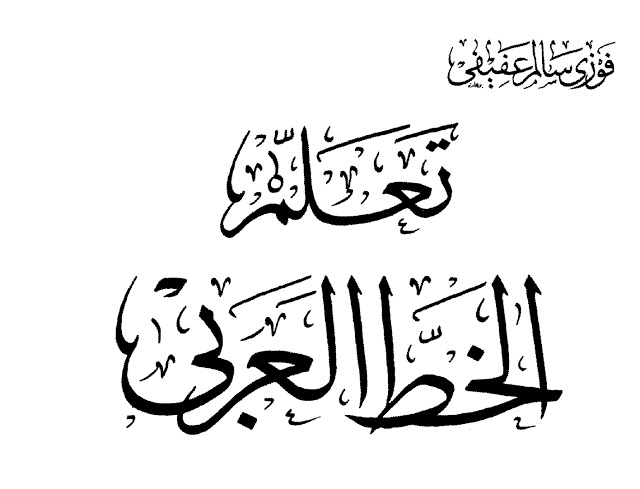 فوزى سالم عفيفى
تعلم
الخط العربى